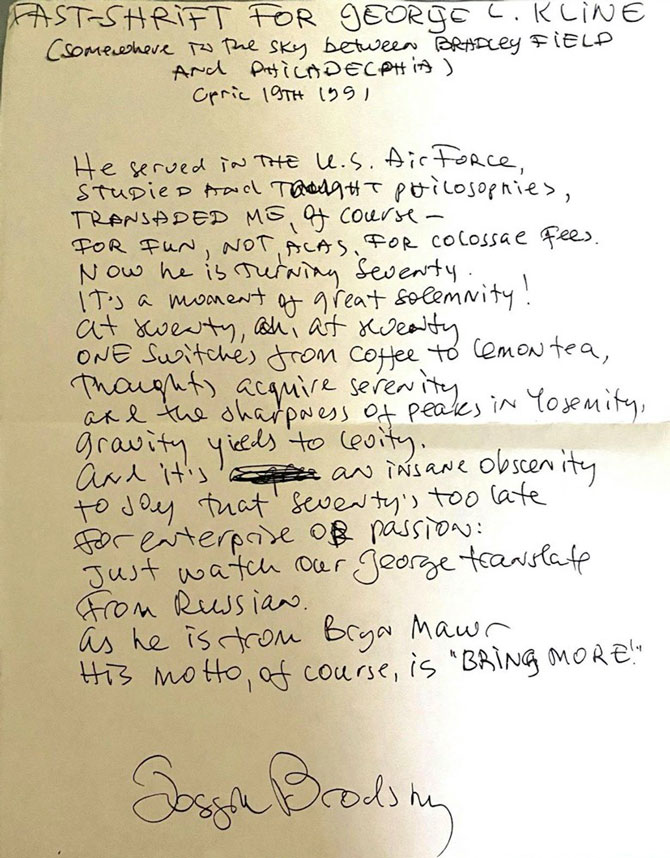 FAST-SHRIFT FOR GEORGE L. KLINE
(somewhere in the sky between BRADLEY FIELD
AND PHILADELPHIA)
April 19TH 1991
He served in THE U.S. Air Force,
STUDIED AND TAUGHT philosophies,
TRANSLATED ME, of course —
FOR FUN, NOT, ALAS, FOR colossal fees.
Now he is turning seventy.
It's a moment of great solemnity!
At seventy, ah, at seventy
ONE switches from coffee to lemon tea,
thoughts acquire serenity
and the sharpness of peaks in Yosemity,
gravity yields to levity.
And it's an insane obscenity
to say that seventy's too late
for enterprise OR passion:
just watch our George translate
from Russian.
As he is from Bryn Mawr
His motto, of course, is "BRING MORE!"
Joseph Brodsky